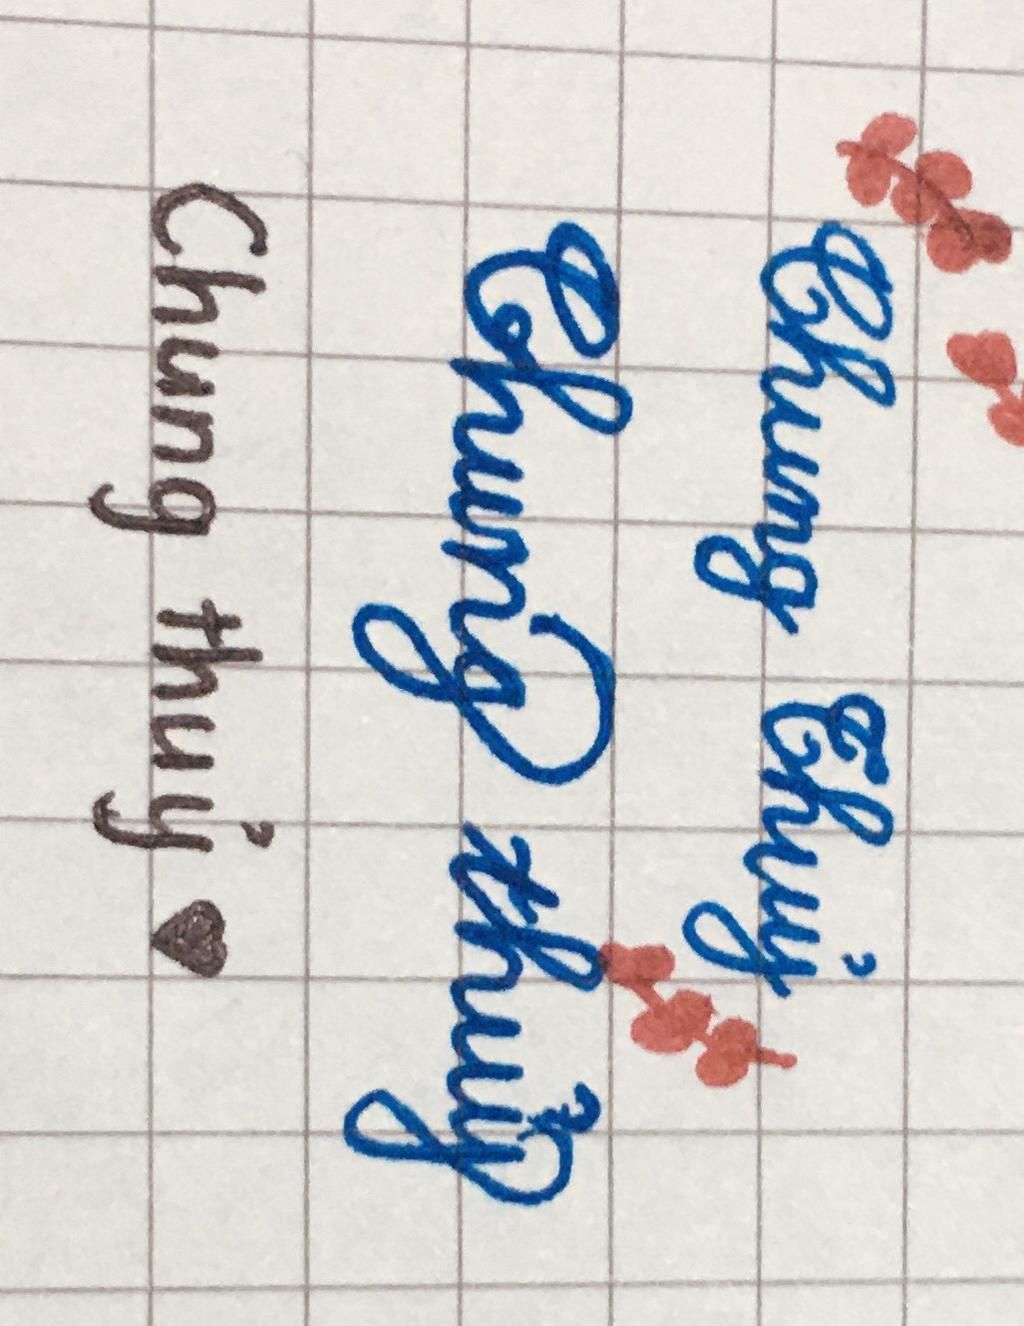 Chung Thuỷ
Chung thuỷ
Chung thuỷ